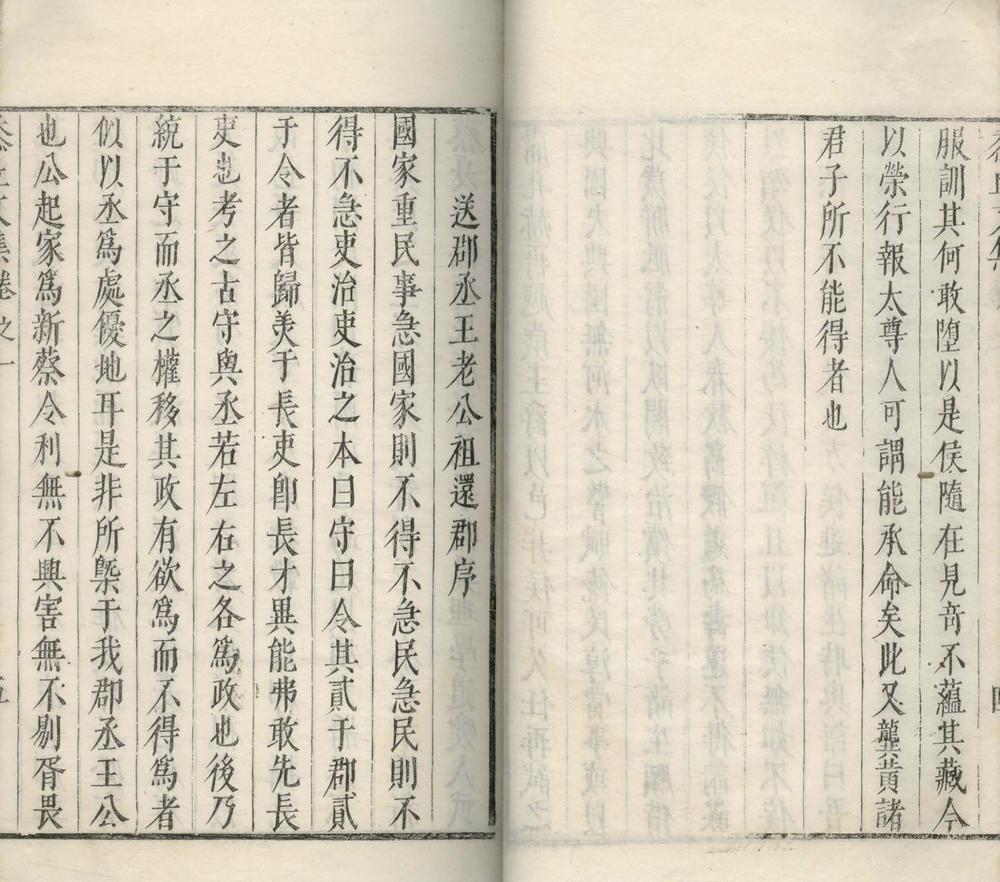 服訓其何敢墮以是侯隨在見竒不蘊其藏今
以榮行報太尊人可謂能承命矣此又龔黃諸
君子所不能得者也
送郡丞王老公祖還郡序
國家重民事急國家則不得不急民急民則不
得不急吏治吏治之本曰守曰令其貳于郡貳
于令者皆歸美于長吏卽長才異能弗敢先長
吏也考之古守與丞若左右之各爲政也後乃
統于守而丞之權移其政有欲爲而不得爲者
似以丞爲處優地耳是非所槩于我郡丞王公
也公起家爲新蔡令利無不興害無不剔胥畏
文集卷之一
五